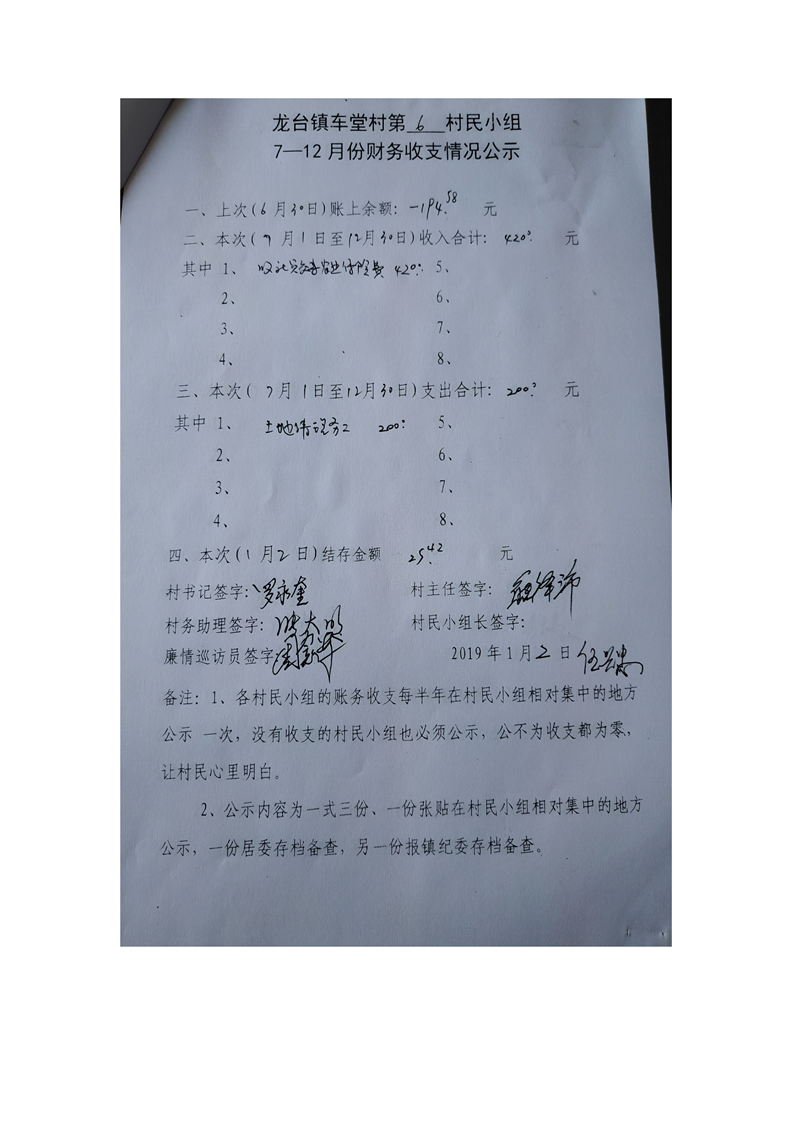 龙台镇车堂村第 6 村民小组
7—12月份财务收支情况公示
一、上次(6月30日)账上余额:-194.58 元
二、本次(7月1日至12月30日)收入合计:420 元
其中 1、 420 5、
2、 6、
3、 7、
4、 8、
三、本次(7月1日至12月30日)支出合计:200 元
其中 1、 土地 200 5、
2、 6、
3、 7、
4、 8、
四、本次(1月2日)结存金额 25.42 元
村书记签字:罗永奎 村主任签字:
村务助理签字: 村民小组长签字:
廉情巡访员签字 2019年1月2日
备注:1、各村民小组的账务收支每半年在村民小组相对集中的地方
公示 一次,没有收支的村民小组也必须公示,公不为收支都为零,
让村民心里明白。
2、公示内容为一式三份、一份张贴在村民小组相对集中的地方
公示,一份居委存档备查,另一份报镇纪委存档备查。